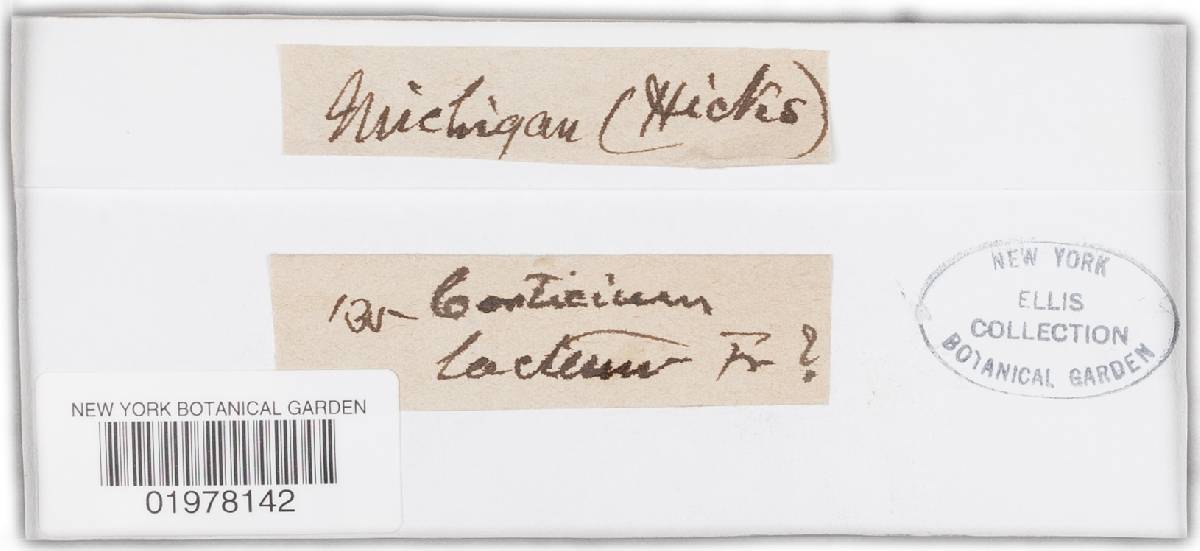 Michigan (Hicks)
Corticium
lacteum Fr ?
NEW YORK
ELLIS
COLLECTION
BOTANICAL GARDEN
NEW YORK BOTANICAL GARDEN
01978142